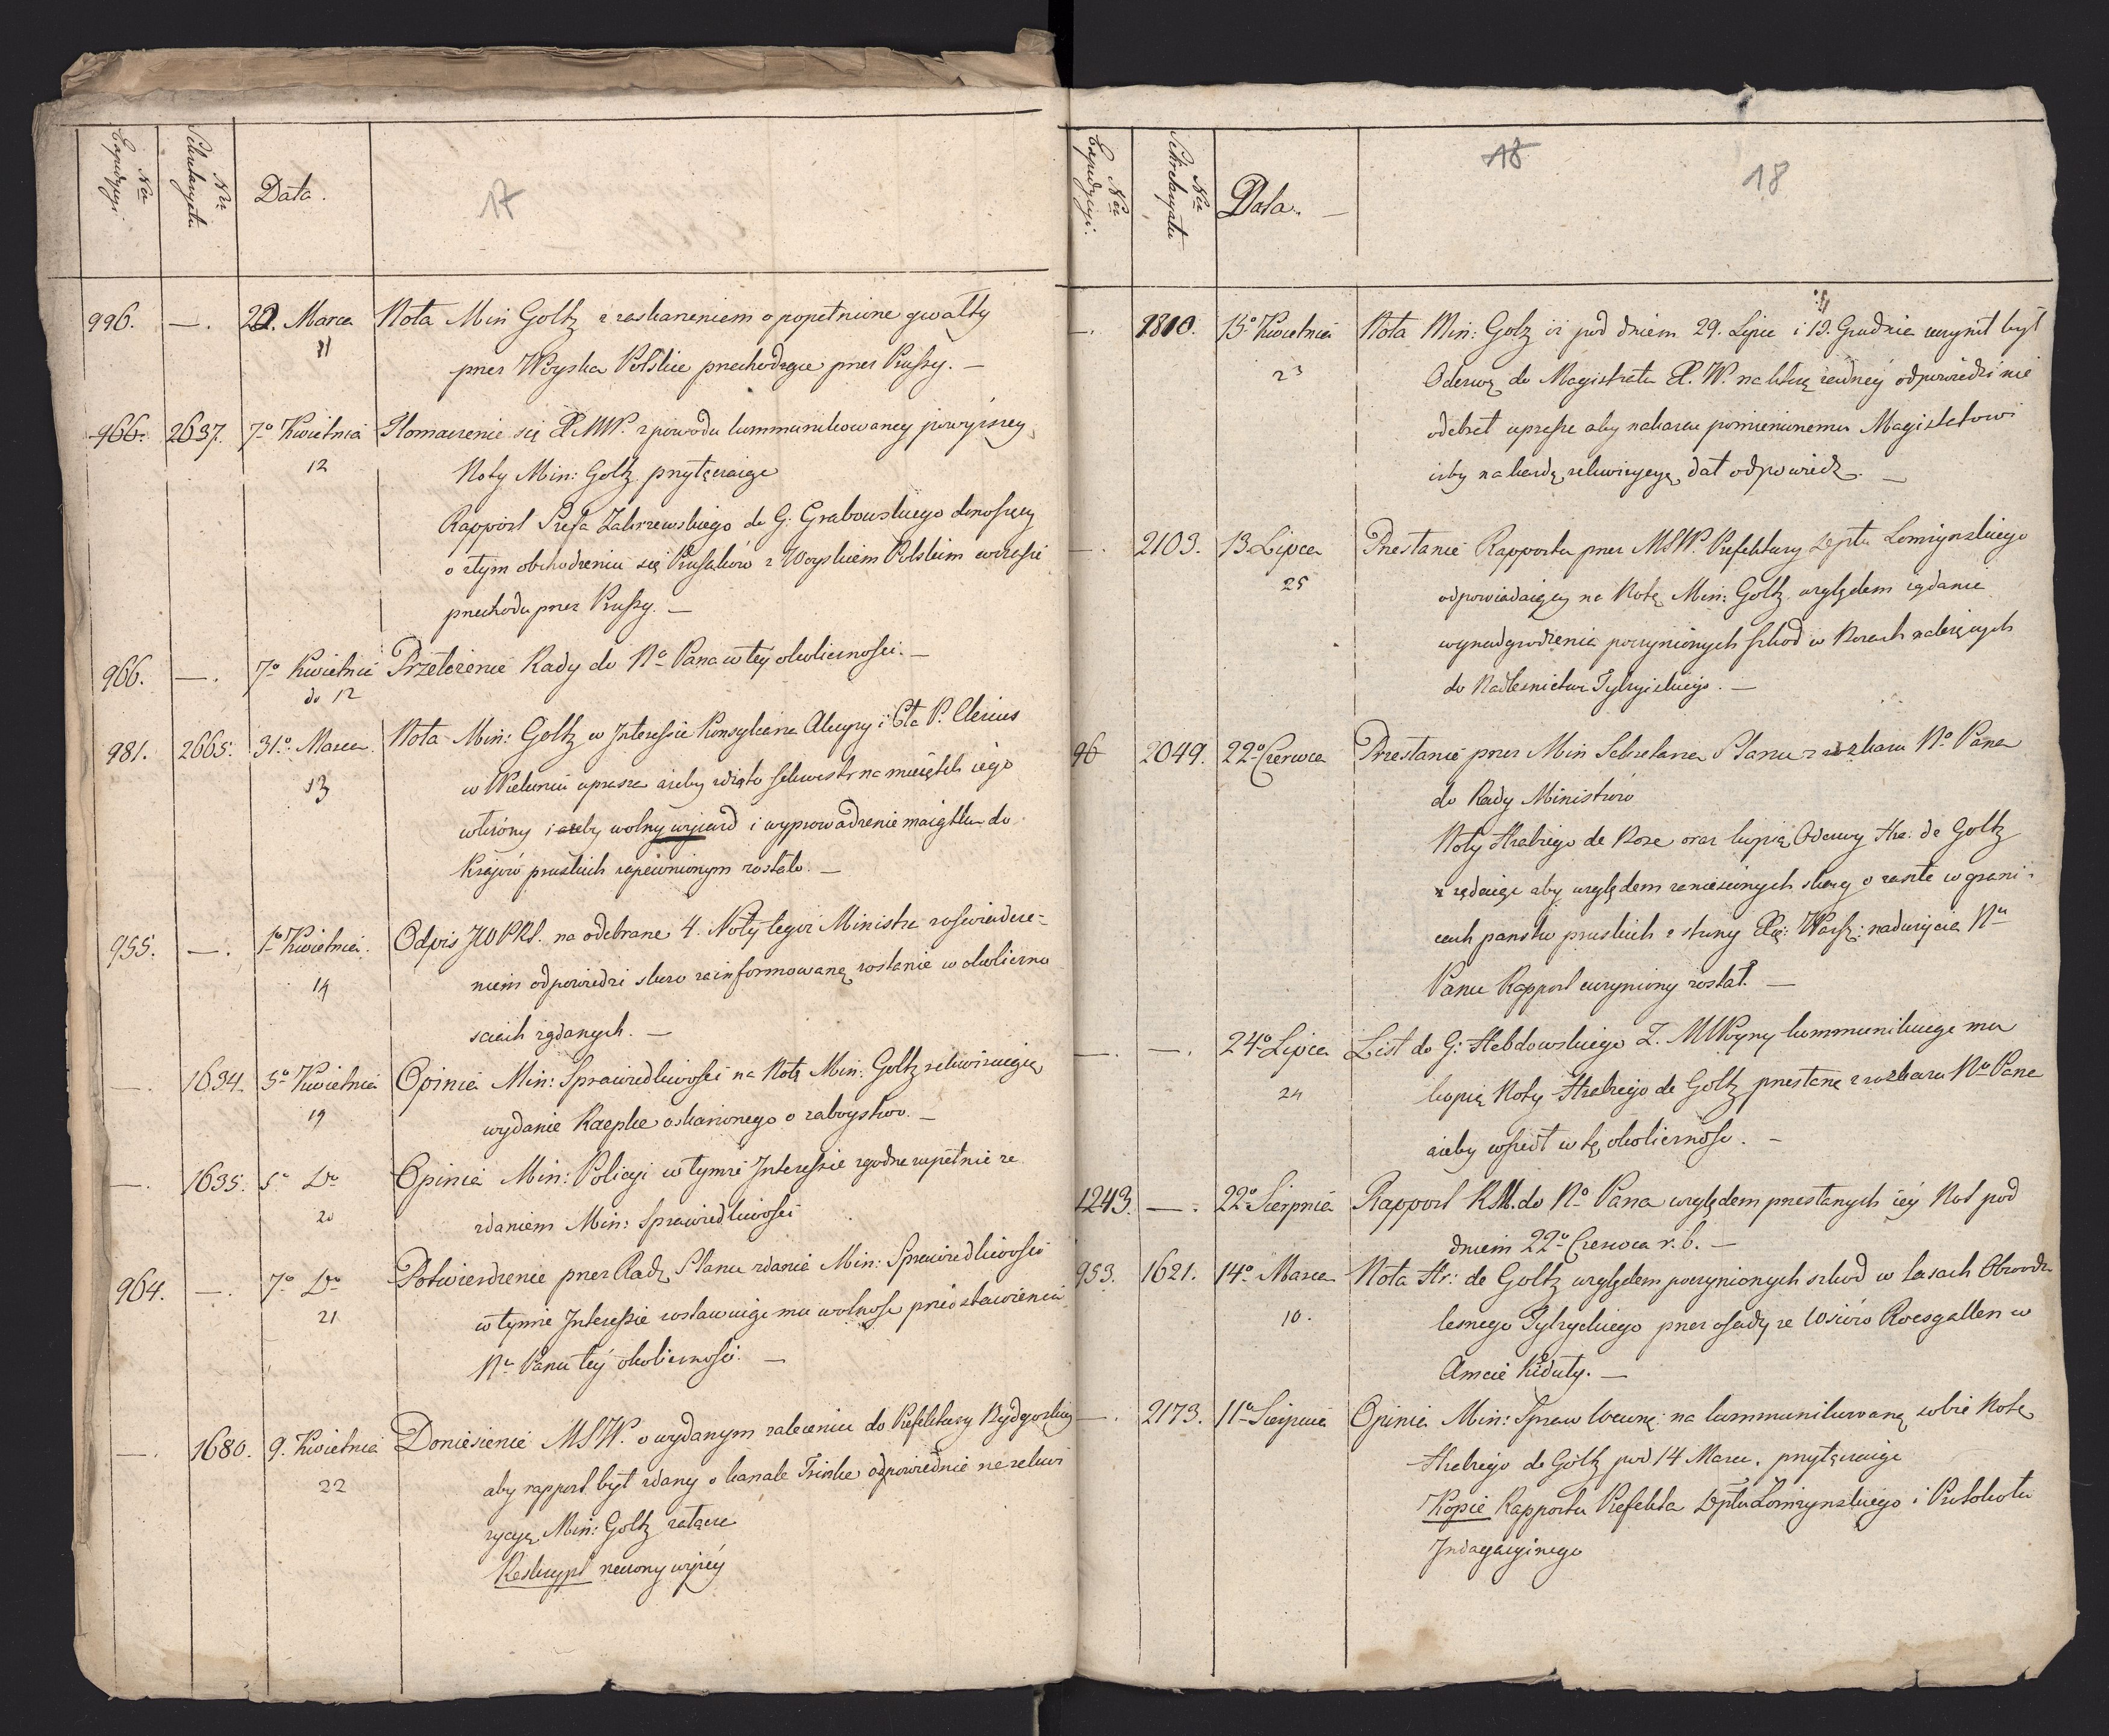 Ner Expedycyi.
Nr Sekretaryatu
Data.
17
996. —. 20. Marca Nota Min Goltz z zaskarzeniem o popełnione gwałty
11
przez Woyska Polskie przechodzące przez Prussy. —
966. 2637. 7º Kwietnia Tłomaczenie się z powodu kommunikowaney powyższey
12
Noty Min: Goltz przyłączaiąc
Rapport Prefa Zakrzewskiego do G: Grabowskiego donoszący
o złym obchodzeniu się Prusaków z Woyskiem Polskim w czasie
przechodu przez Prussy. —
966. —. 7º Kwietnia Przełożenie Rady do Nº Pana w tey okoliczności. —
do 12
981. 2665. 31º Marca Nota Min: Goltz w Interessie Konsyliarza
13
w Wieluniu uprasza ażeby zdięto sekwestr na maiątek iego
włożony i ażeby wolny wyiazd i wyprowadzenie maiątku do
Kraiów pruskich zapewnionym zostało. —
955. —. 1º Kwietnia. Odpis na odebrane 4. Noty tegoż Ministra zoświadcze-
14
niem odpowiedzi skoro zainformowaną zostanie w okoliczno
sciach żądanych. —
—. 1634. 5º Kwietnia Opinia Min: Sprawiedliwości na Notę Min: Goltz rekwiruiącą
19
wydanie Kaepke oskarzonego o zaboystwo. —
—. 1635. 5º Dº Opinia Min: Policyi w tymże Interessie zgodna zupełnie ze
20
zdaniem Min: Sprawiedliwości
964. —. 7º Dº Potwierdzenie przez Radę Stanu zdania Min: Sprawiedliwości
21
w tymże Interessie zostawuiąc mu wolność przedstawienia
Nu Panu tey okoliczności. —
—. 1680. 9. Kwietnia Doniesienie MSW. o wydanym zaleceniu do Prefektury Bydgoskiey
22
aby rapport był zdany o kanale odpowiednie na rekwi
zycyą Min: Goltz załącza
Reskrypt rzeczony wyżey
Ner Expedycyi.
Nr Sekretaryatu
Data. —
18
18
—. 1810. 15º Kwietnia Nota Min: Golz iż pod dniem 29. Lipca i 19. Grudnia uczynił był
23
Odezwę do Magistratu M. W. na którą żadney odpowiedzi nie
odebrał uprasza aby nakazał pomienionemu Magistratowi
iżby na każdą rekwizycyą dał odpowiedź. —
—. 2103. 13. Lipca Przesłanie Rapportu przez MSW. Prefektury Dptu Łomżynskiego
25
odpowiadaiący na Notę Min: Goltz względem żądania
wynadgrodzenia poczynionych szkod w Borach należących
do Nadlesnictwa Tylżyckiego. —
96 2049. 22º Czerwca Przesłanie przez Min Sekretarza Stanu z rozkazu Nº Pana
do Rady Ministrów
Noty Hrabiego de Bose oraz kopią Odezwy Hra: de Goltz
żądaiąc aby względem zaniesionych skarg o zaszłe w grani-
cach panstw pruskich z strony Xię: Warsz: nadużycia Nu
Panu Rapport uczyniony został. —
—. —. 24º Lipca List do G: Hebdowskiego Z. MWoyny kommunikuiąc mu
24
kopią Noty Hrabiego de Goltz przesłaną z rozkazu Nº Pana
ażeby wszedł w tę okoliczność. —
1243. —. 22º Sierpnia Rapport RM. do Nº Pana względem przesłanych iey Not pod
dniem 22º Czerwca r. b. —
953. 1621. 14º Marca Nota Hr: de Goltz względem poczynionych szkod w Lasach Obwodu
10.
lesnego Tylżyckiego przez osady ze Wsiów Roesgallen w
Amcie Kiduły. —
—. 2173. 11º Sierpnia Opinia Min: Spraw Wewnę: na kommunikowaną sobie Notę
Hrabiego de Goltz pod 14 Marca. przyłączaiąc
Kopie Rapportu Prefekta Dptu Łomżynskiego i Protokołu
Indagacyinego